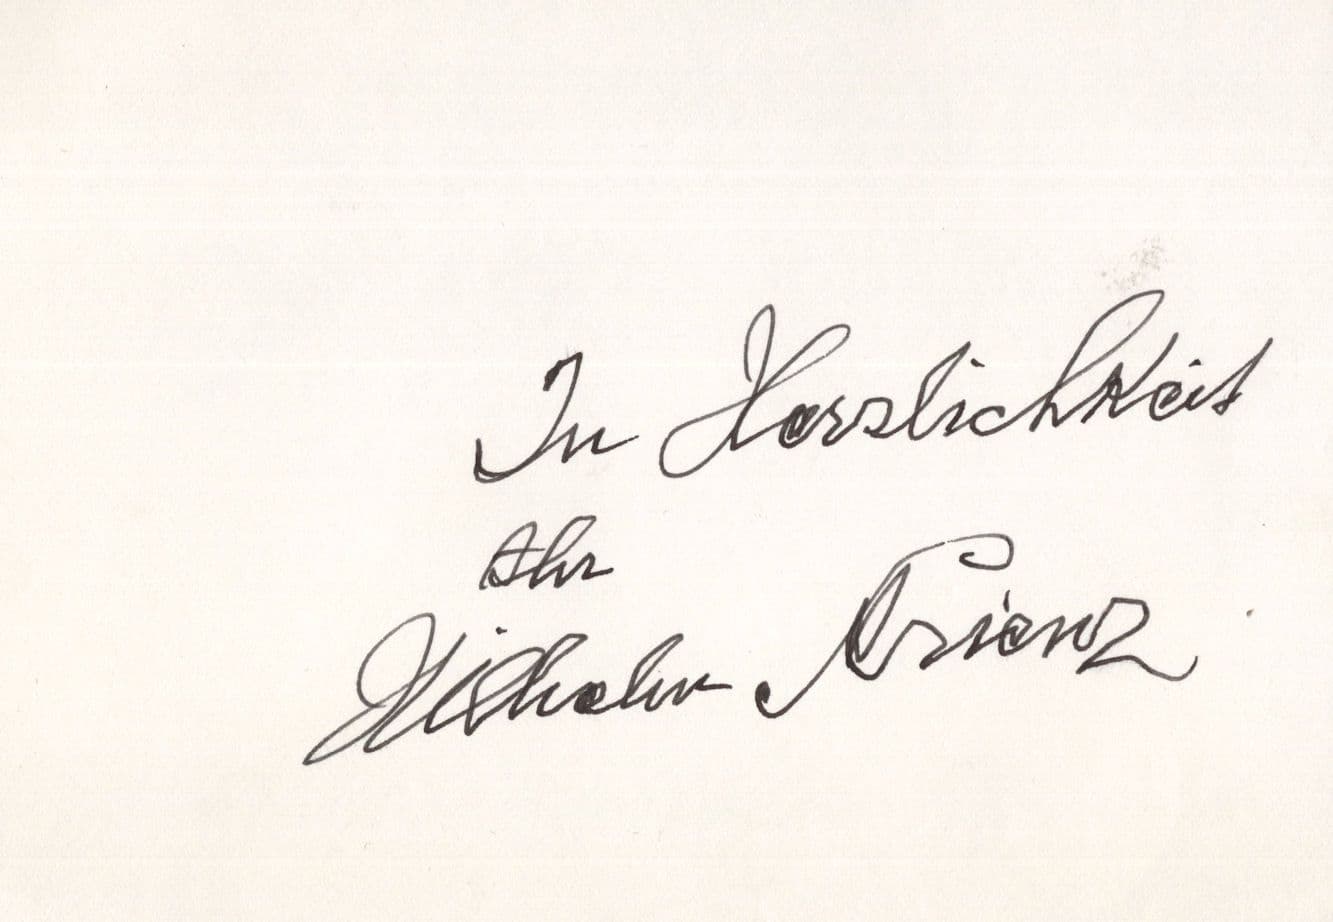 In Herzlichkeit
Ihr
Wilhelm Prienz